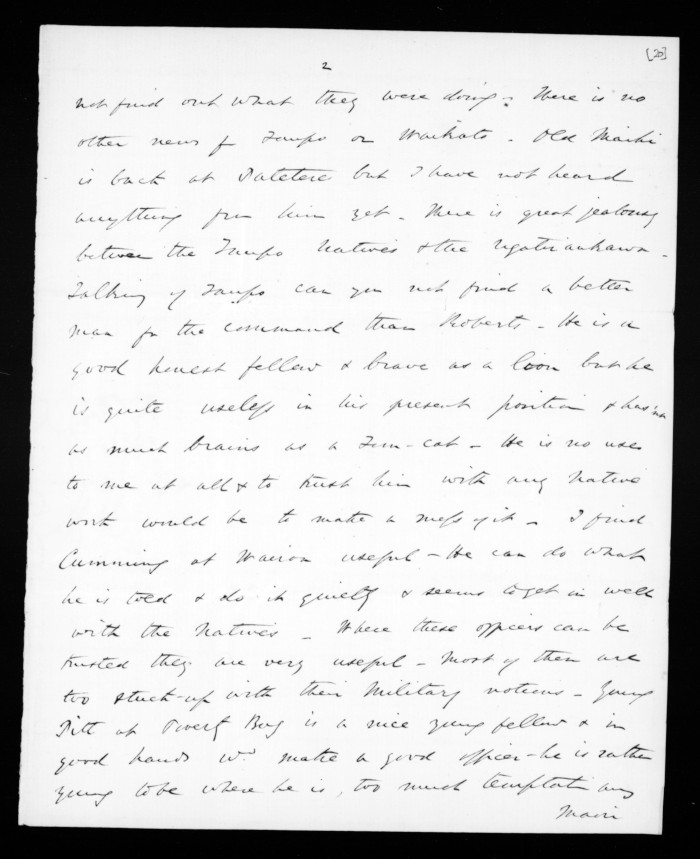 [20]
2
not find out what they were doing. There is no
other news fr Taupo or Waikato - Old
is back at Patetere but I have not heard
anything from him yet - There is great jealousy
between the Taupo Natives & the Ngatiraukawa -
Talking of Taupo can you not find a better
man for the command than Roberts - He is a
good honest fellow & brave as a lion but he
is quite useless in his present position & has not
as much brains as a Tom-cat - He is no use
to me at all & to trust him with any Native
work would be to make a mess of it - I find
Cumming at Wairoa useful - He can do what
he is told & do it quietly & seems to get on well
with the Natives - Where these officers can be
trusted they are very useful - Most of them are
too stuck-up with their Military notions - Young
Pitt at Poverty Bay is a nice young fellow & in
good hands wd. make a good officer - he is rather
young to be where he is, too much temptation
Maori